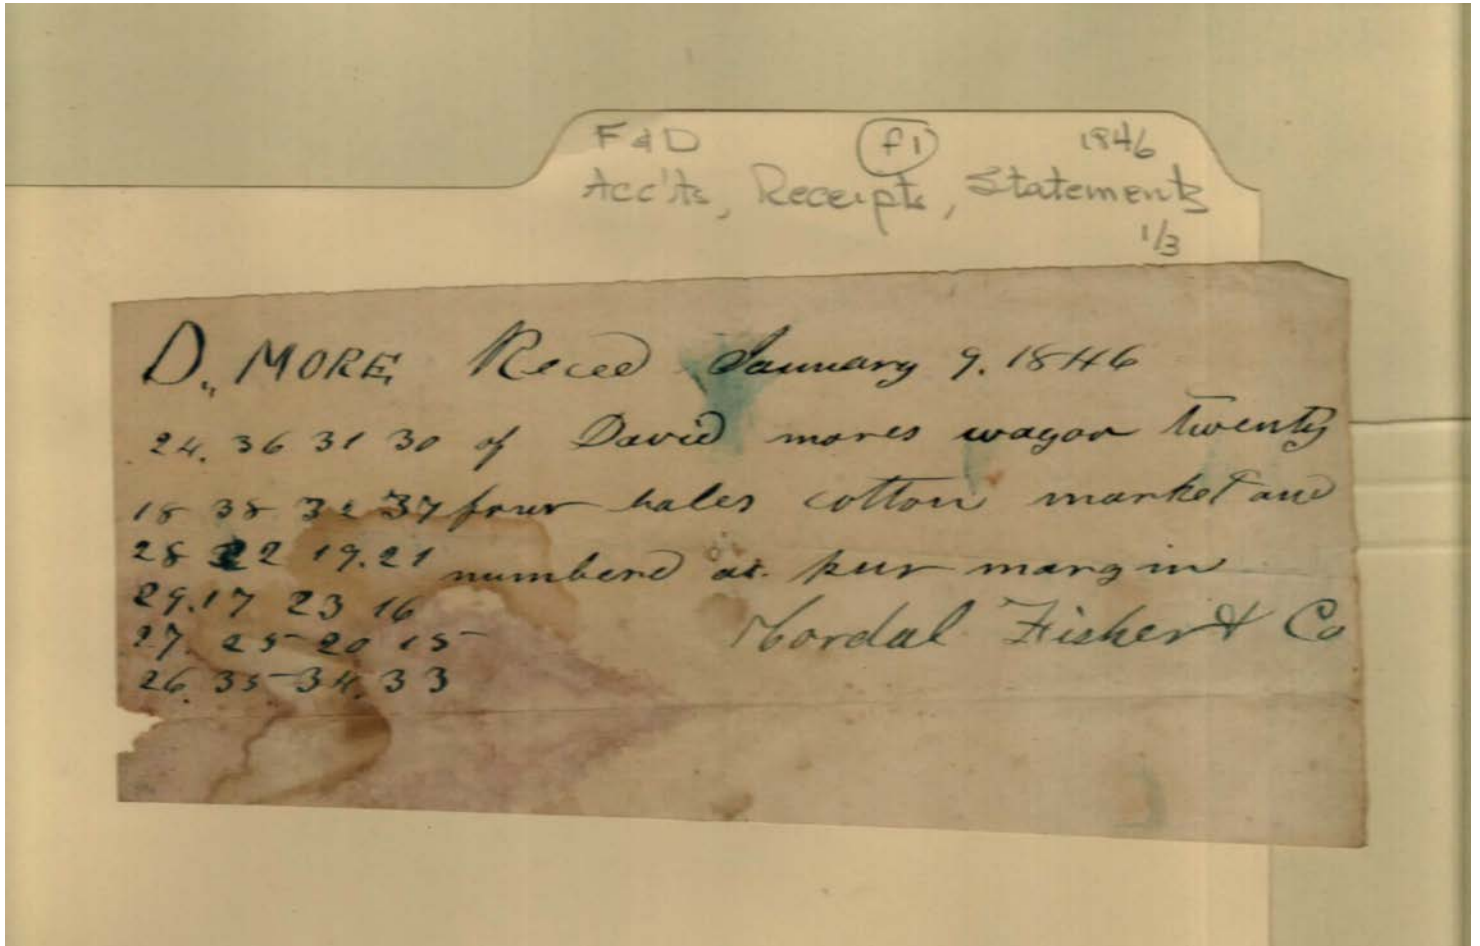 F & D (f1) 1846
Acc'ts, Receipts, Statements
1/3
D,, MORE Reced January 9. 1846
24. 36 31 30 of David mores wagon twenty
18 38 32 37 four bales cotton market and
28 22 19. 21 numbered as per margin
29. 17 23 16
27. 25 20 15
26. 35 34. 33
Fisher & Co